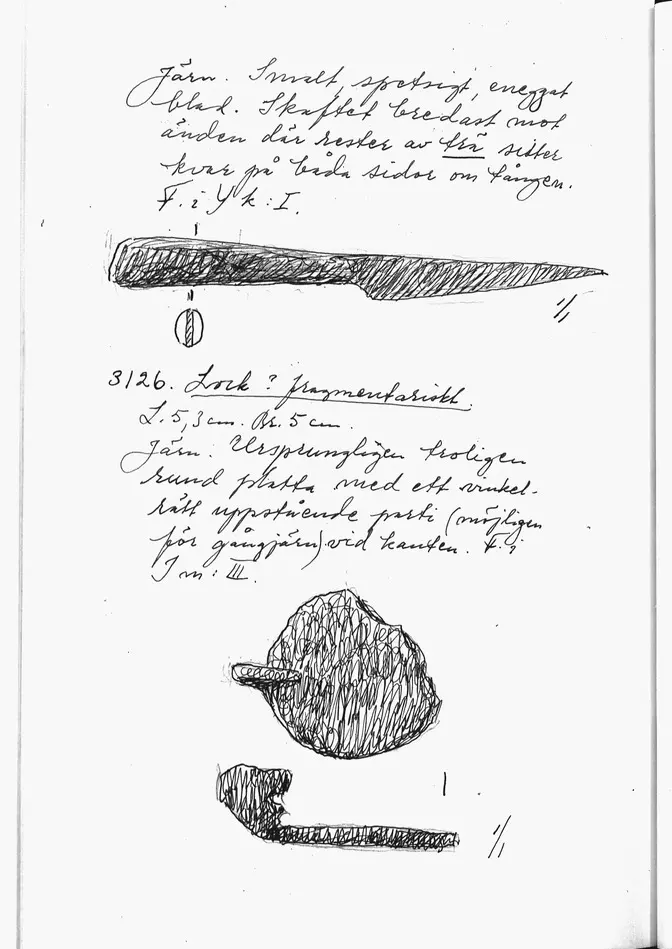 Järn. Smalt, spetsigt, eneggat
blad. Skaftet bredast mot
änden där rester av trä sitter
kvar på båda sidor om tången.
F. i Y k: I.
1/1
3126. Lock? fragmentariskt.
L. 5,3 cm. Br. 5 cm.
Järn. Ursprungligen troligen
rund platta med ett vinkel-
rätt uppstående parti (möjligen
för gångjärn) vid kanten. F. i
I m: III.
1/1